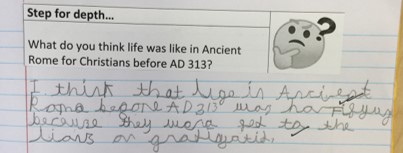 Step for depth...
What do you think life was like in Ancient
Rome for Christians before AD 313?
I think that lige in Ancient
Rome begore AD 313 was horrifying
because they were fed to the
lions or